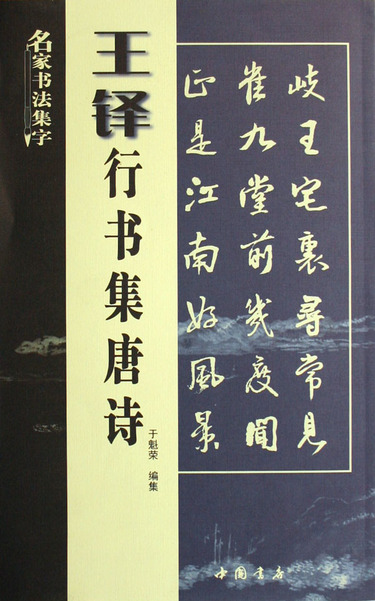 名家书法集字
王铎
行书集唐诗
于魁荣 编集
岐王宅裏尋常見
崔九堂前幾度聞
正是江南好風景
中国书店